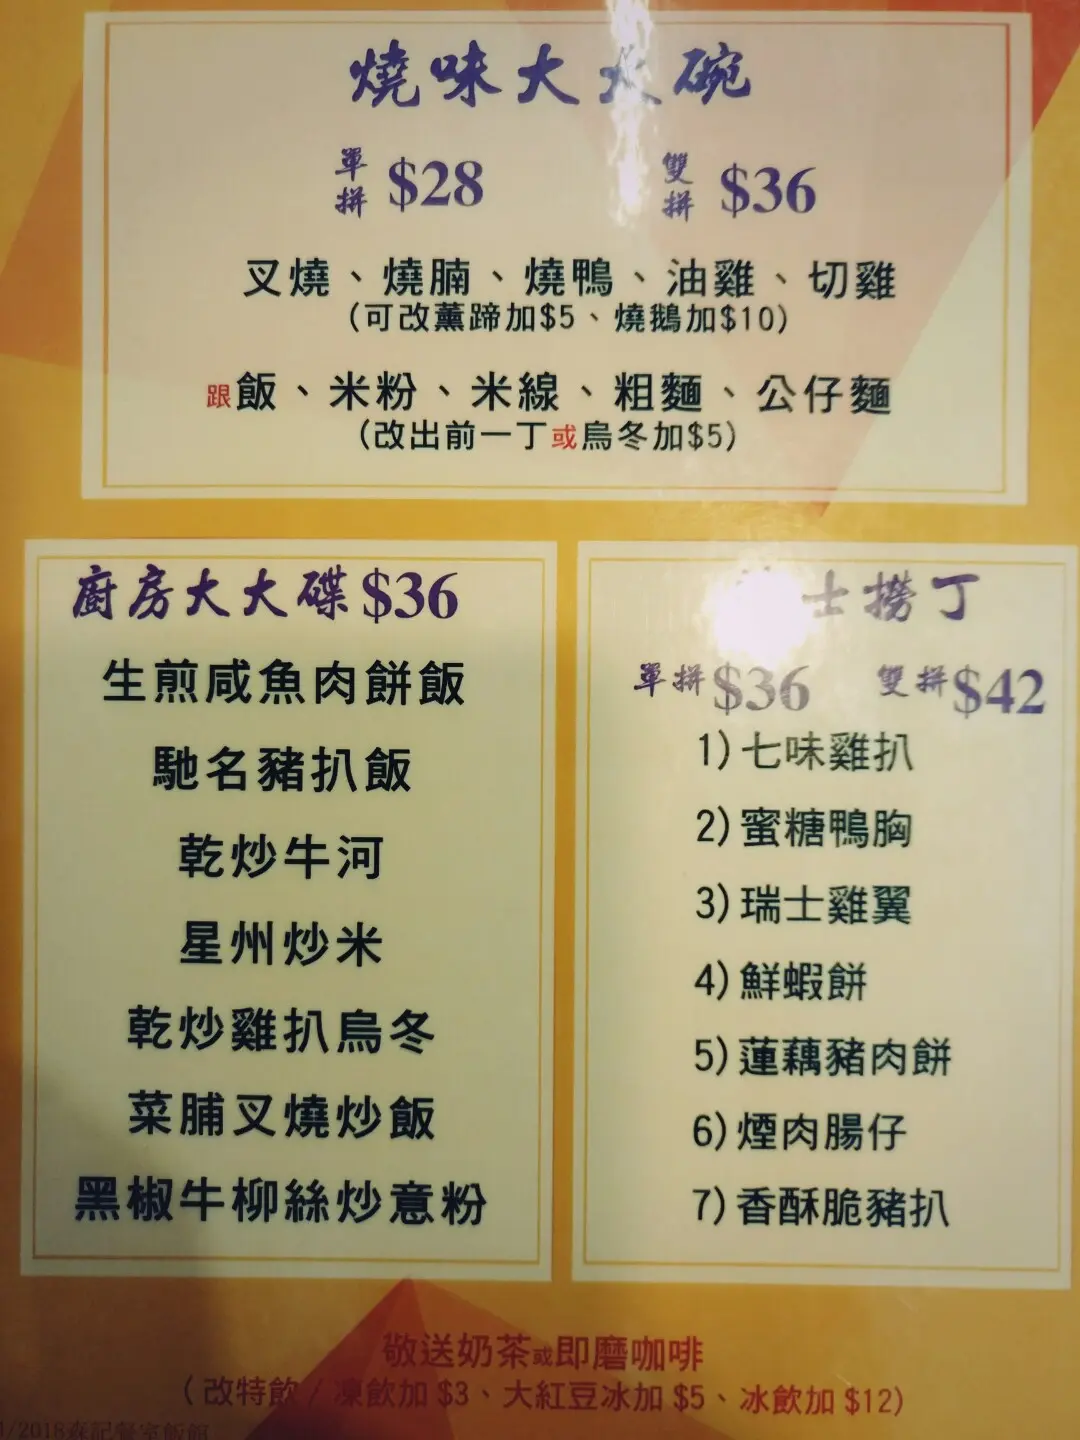 燒味大大碗
單拼 $28 雙拼 $36
叉燒、燒腩、燒鴨、油雞、切雞
(可改薰蹄加$5、燒鵝加$10)
跟飯、米粉、米線、粗麵、公仔麵
(改出前一丁或烏冬加$5)
廚房大大碟$36
生煎咸魚肉餅飯
馳名豬扒飯
乾炒牛河
星州炒米
乾炒雞扒烏冬
菜脯叉燒炒飯
黑椒牛柳絲炒意粉
士撈丁
單拼$36 雙拼$42
1)七味雞扒
2)蜜糖鴨胸
3)瑞士雞翼
4)鮮蝦餅
5)蓮藕豬肉餅
6)煙肉腸仔
7)香酥脆豬扒
敬送奶茶或即磨咖啡
(改特飲/凍飲加 $3、大紅豆冰加 $5、冰飲加 $12)
1/2018森記餐室飯館